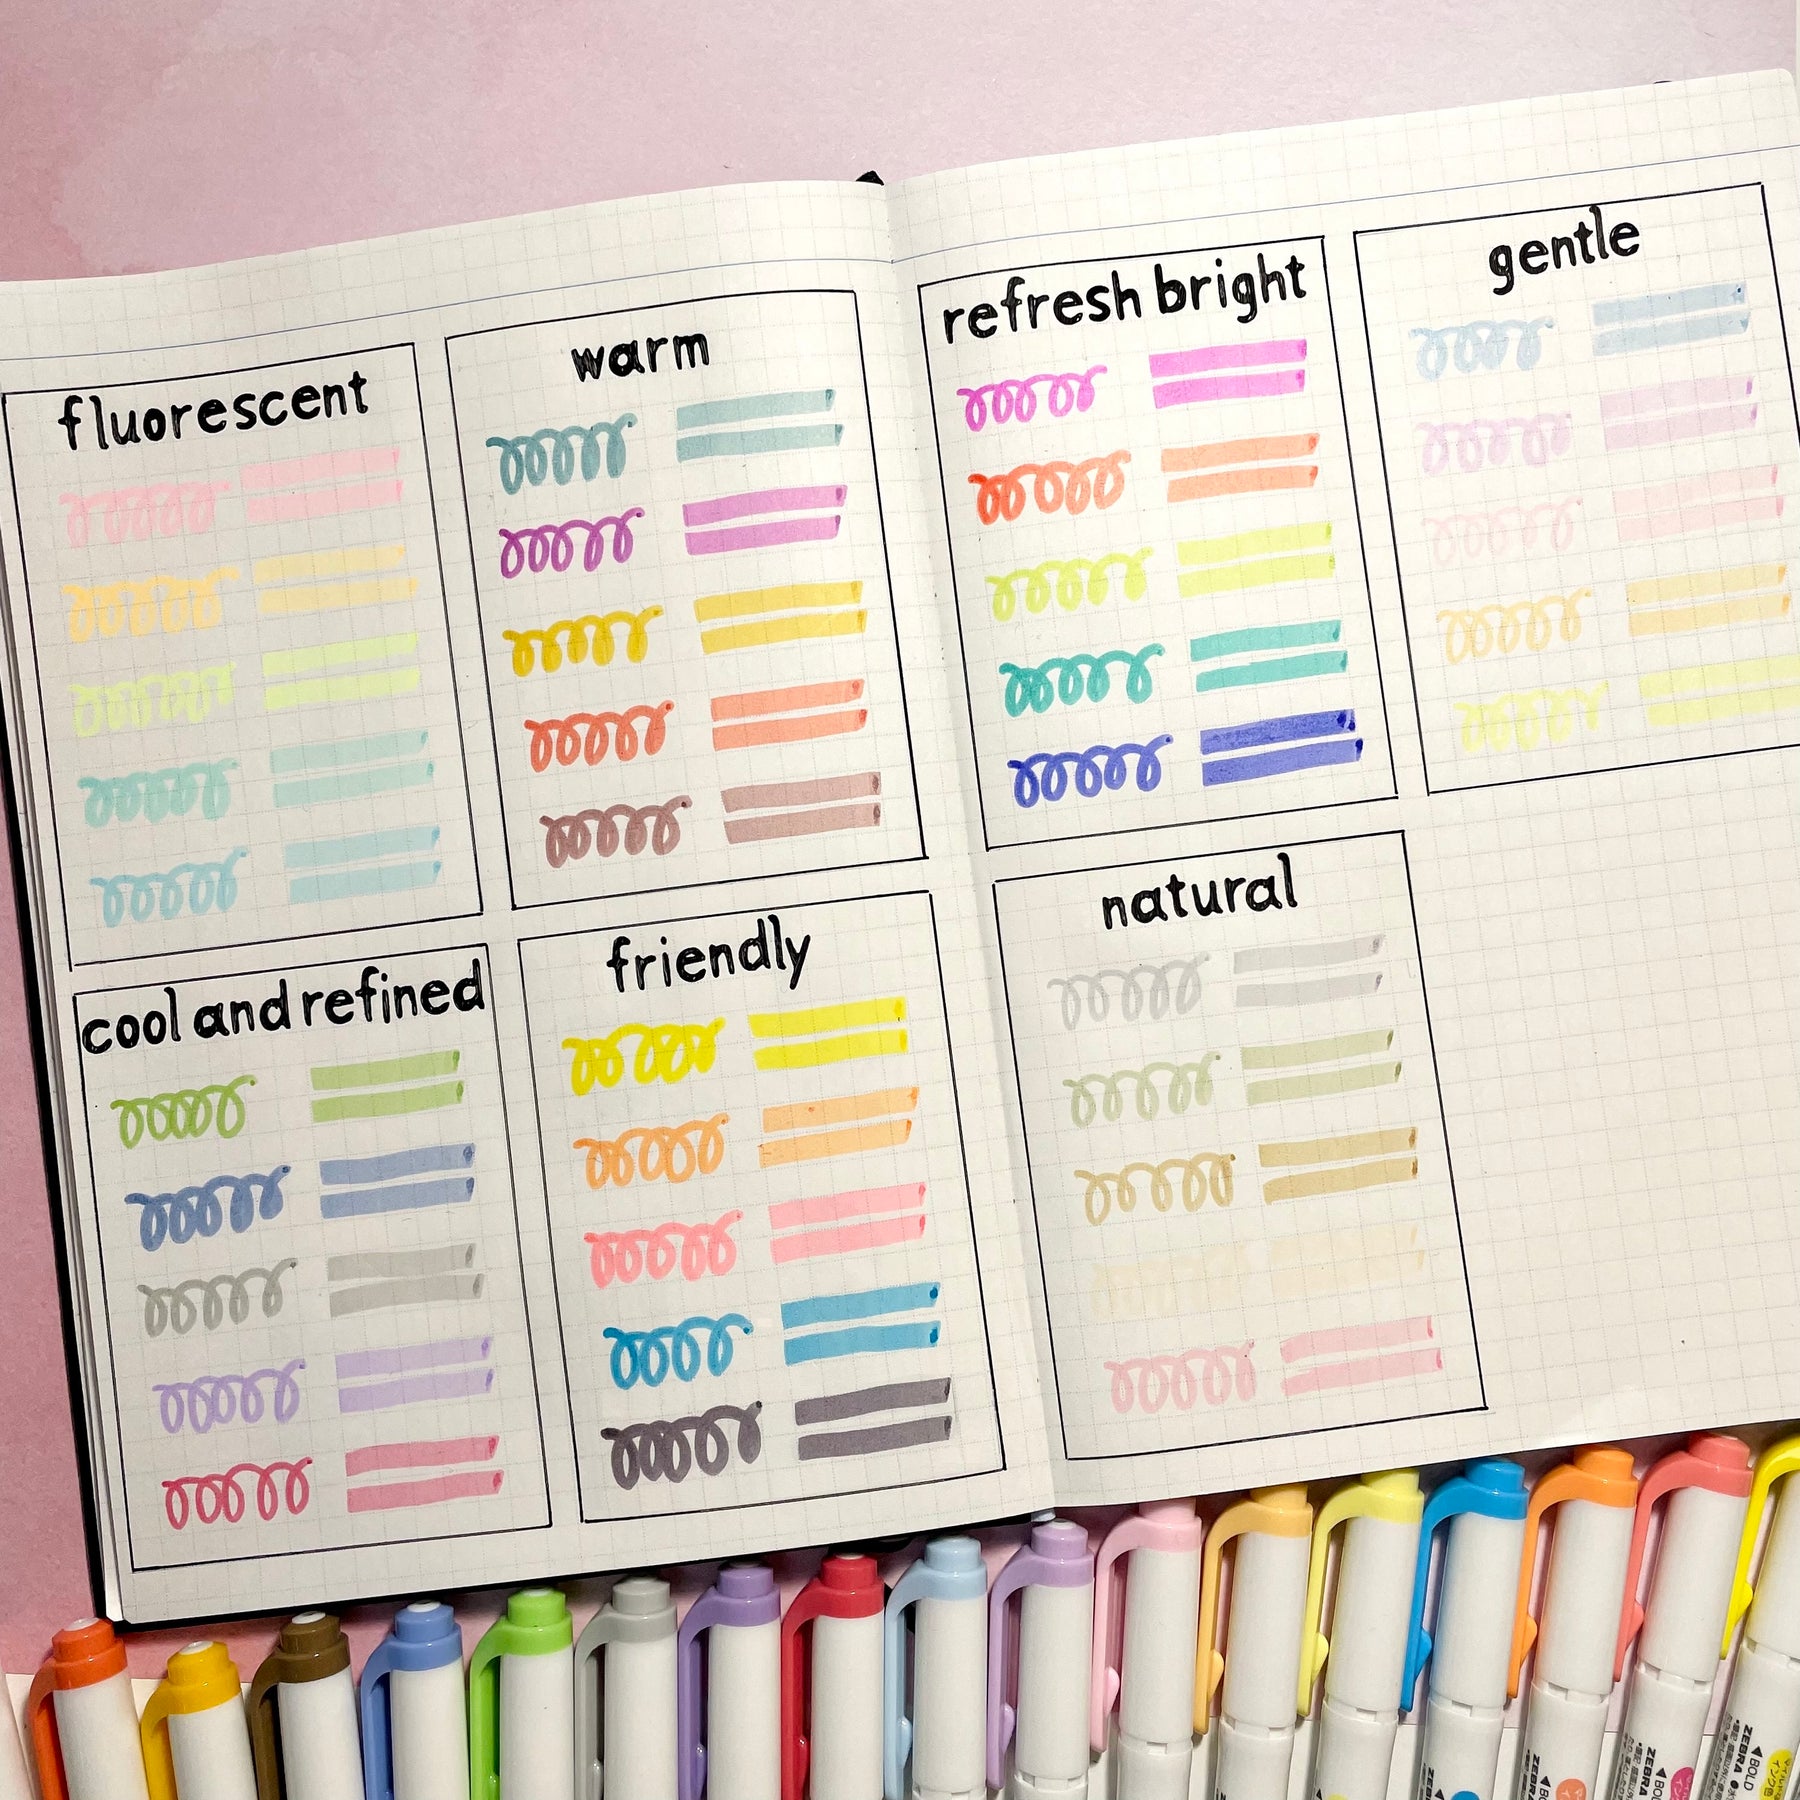 fluorescent
warm
cool and refined
friendly
refresh bright
gentle
natural
ZEBRA
ZEBRA
BOLD
ZEBRA
BOLD